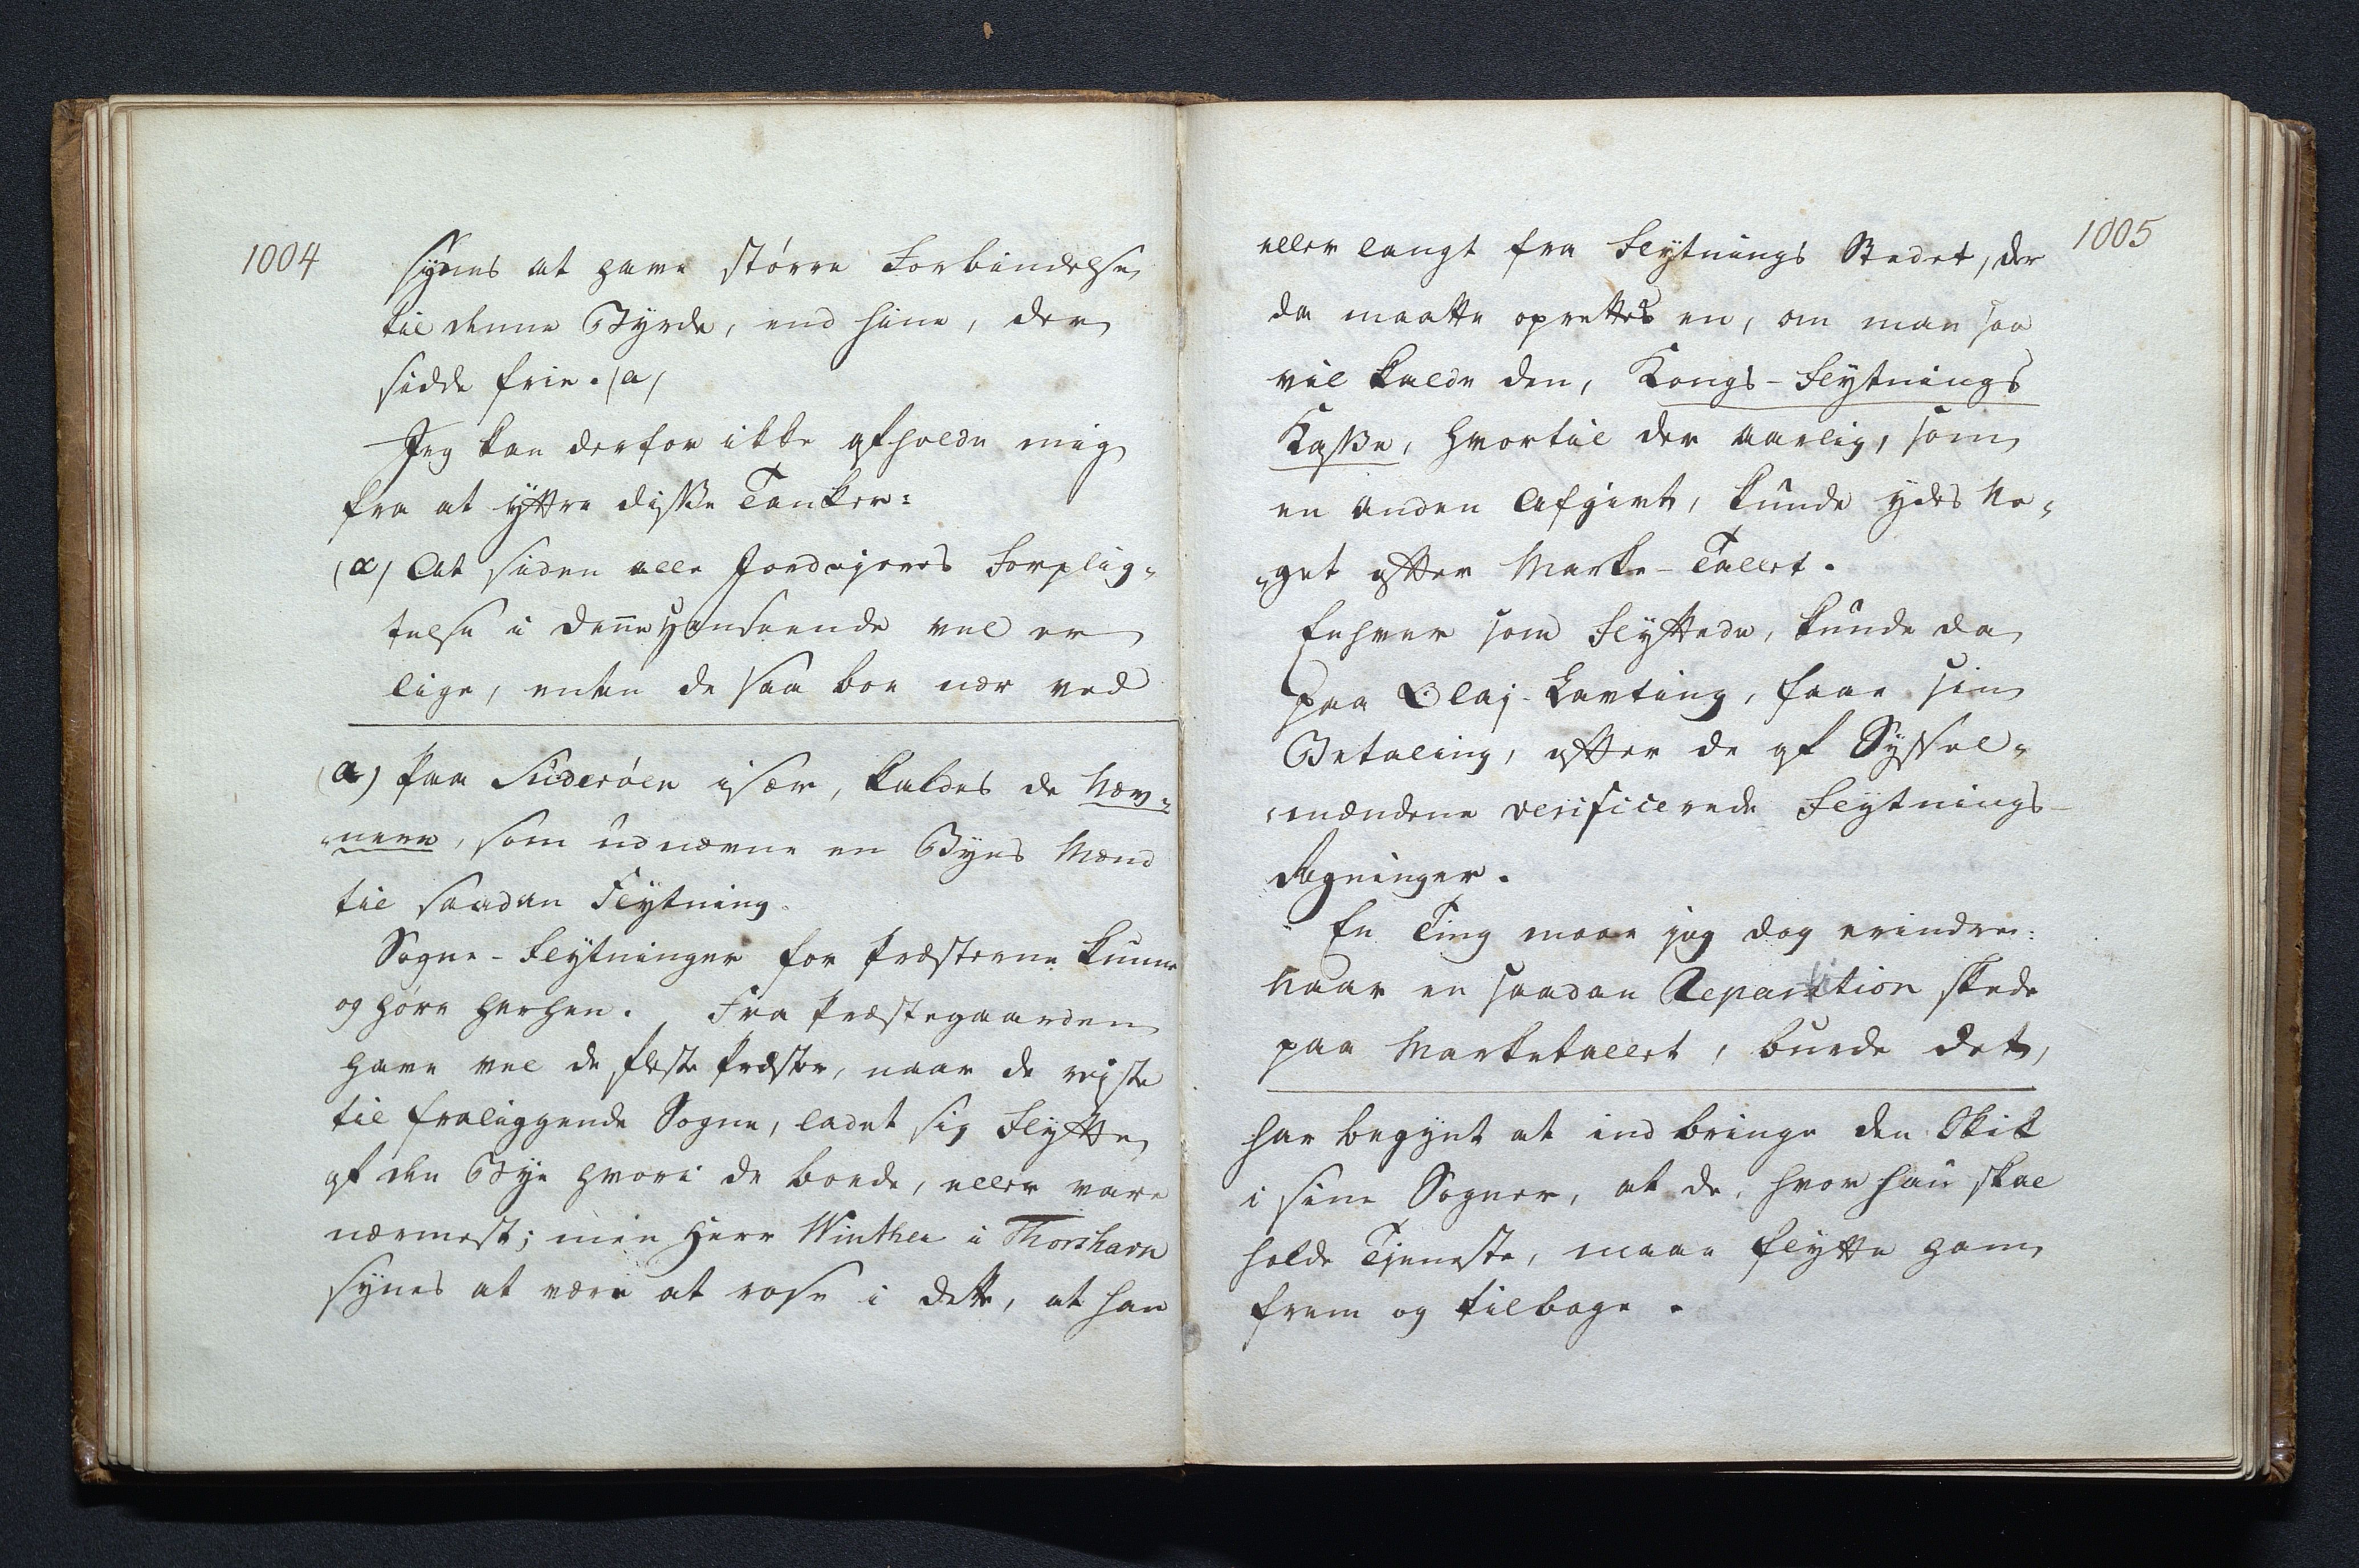 1004
synes at have större Forbindelse
til denne Byrde, end hine, der
sidde frie. (a)
Jeg kan derfor ikke afholde mig
fra at yttre disse Tanker:
(α) At siden alle Jordejeres Forplig-
telse i denne Henseende vel er
lige, enten de saa boe nær ved
(a) Paa Suderöen især, kaldes de Næv-
nere, som udnævne en Byes Mænd
til saadan Flytning.
Sogne-Flytninger for Præsterne kunne
og höre herhen. Fra Præstegaarden
have vel de fleste Præster, naar de rejste
til fraliggende Sogne, ladet sig Flytte
af den Bye hvori de boede, eller vare
nærmest; men Herr Winther i Thorshavn
synes at være at rose i dette, at han
1005
eller langt fra Flytnings Stedet, der
da maatte oprettes en, om man saa
vil kalde den, Kongs-Flytnings
Kasse, hvortil der aarlig, som
en anden Afgivt, kunde ydes No-
get efter Marke-Tallet.
Enhver som Flyttede, kunde da
paa Olaj-Lavting, faae sin
Betaling, efter de af Syssel-
mændene verificerede Flytnings-
Regninger.
En Ting maae jeg dog erindre:
Naar en saadan Repartition skede
paa Marketallet, burde det,
har begynt at indbringe den Skik
i sine Sogner, at de, hvor han skal
holde Tjeneste, maae flytte ham
frem og tilbage.